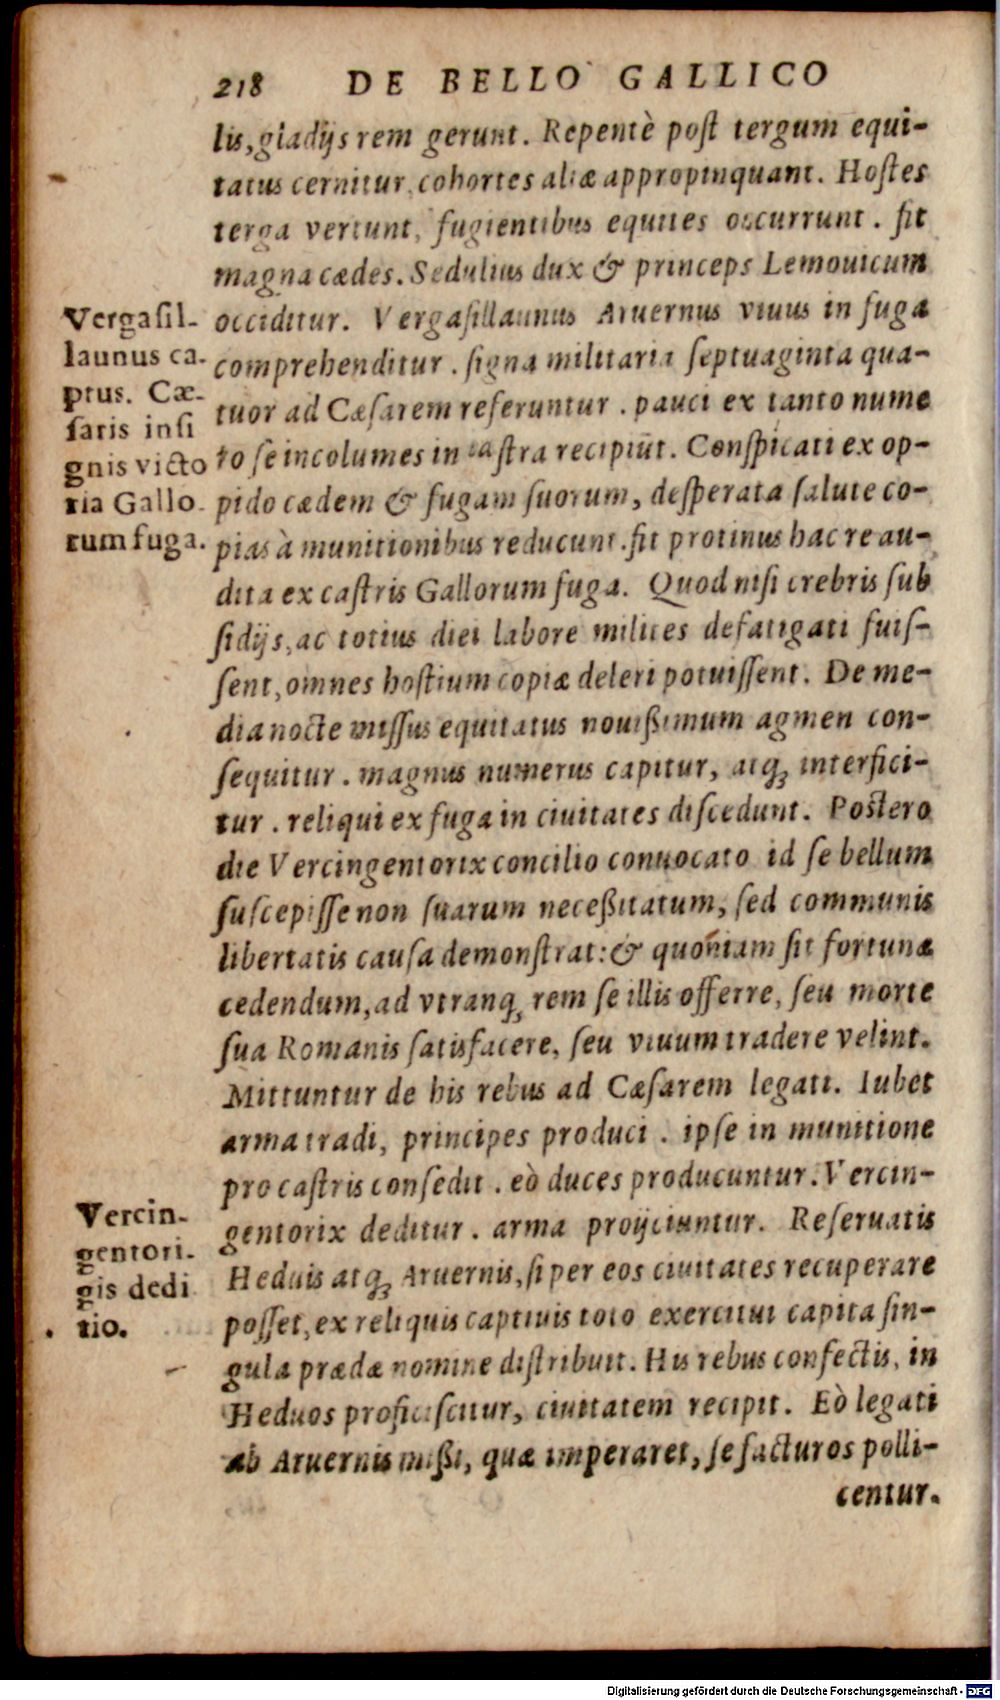 218 DE BELLO GALLICO
lis, gladijs rem gerunt. Repentè post tergum equi-
tatus cernitur, cohortes aliæ appropinquant. Hostes
terga vertunt, fugientibus equites occurrunt. fit
magna cædes. Sedulius dux & princeps Lemouicum
occiditur. Vergasillaunus Aruernus viuus in fuga
comprehenditur. signa militaria septuaginta qua-
tuor ad Cæsarem referuntur. pauci ex tanto nume
ro se incolumes in castra recipiūt. Conspicati ex op-
pido cædem & fugam suorum, desperata salute co-
pias à munitionibus reducunt. fit protinus hac re au-
dita ex castris Gallorum fuga. Quod nisi crebris sub
sidijs, ac totius diei labore milites defatigati fuis-
sent, omnes hostium copiæ deleri potuissent. De me-
dia nocte missus equitatus nouißimum agmen con-
sequitur. magnus numerus capitur, atq; interfici-
tur. reliqui ex fuga in ciuitates discedunt. Postero
die Vercingentorix concilio conuocato id se bellum
suscepisse non suarum neceßitatum, sed communis
libertatis causa demonstrat: & quoniam sit fortunæ
cedendum, ad vtranq; rem se illis offerre, seu morte
sua Romanis satisfacere, seu viuum tradere velint.
Mittuntur de his rebus ad Cæsarem legati. Iubet
arma tradi, principes produci. ipse in munitione
pro castris consedit. eò duces producuntur. Vercin-
gentorix deditur. arma proijciuntur. Reseruatis
Heduis atq; Aruernis, si per eos ciuitates recuperare
posset, ex reliquis captiuis toto exercitui capita sin-
gula prædæ nomine distribuit. His rebus confectis, in
Heduos proficiscitur, ciuitatem recipit. Eò legati
ab Aruernis mißi, quæ imperaret, se facturos polli-
centur.
Vergasil-
launus ca-
ptus. Cæ-
saris insi
gnis victo
ria Gallo-
rum fuga.
Vercin-
gentori-
gis dedi
tio.
Digitalisierung gefördert durch die Deutsche Forschungsgemeinschaft - DFG